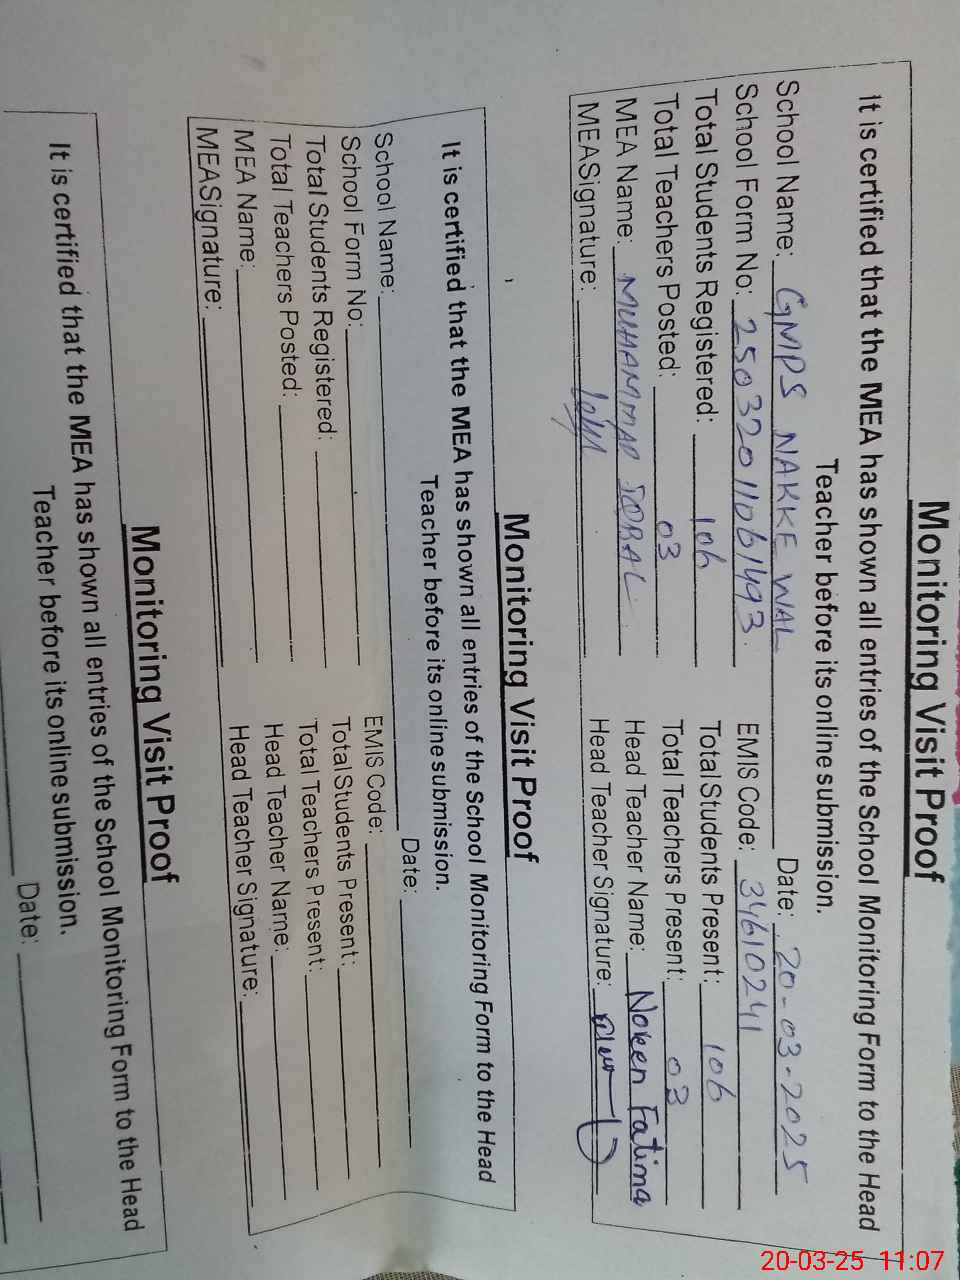 Monitoring Visit Proof
It is certified that the MEA has shown all entries of the School Monitoring Form to the Head
Teacher before its online submission.
School Name: GMPS NAKKE WAL Date: 20-03-2025
School Form No: 25032011061493 EMIS Code: 34610241
Total Students Registered: 106 Total Students Present: 106
Total Teachers Posted: 03 Total Teachers Present: 03
MEA Name: MUHAMMAD IQBAL Head Teacher Name: Noreen Fatima
MEASignature: Head Teacher Signature:
Monitoring Visit Proof
It is certified that the MEA has shown all entries of the School Monitoring Form to the Head
Teacher before its online submission.
School Name: Date:
School Form No: EMIS Code:
Total Students Registered: Total Students Present:
Total Teachers Posted: Total Teachers Present:
MEA Name: Head Teacher Name:
MEASignature: Head Teacher Signature:
Monitoring Visit Proof
It is certified that the MEA has shown all entries of the School Monitoring Form to the Head
Teacher before its online submission.
Date:
20-03-25 11:07